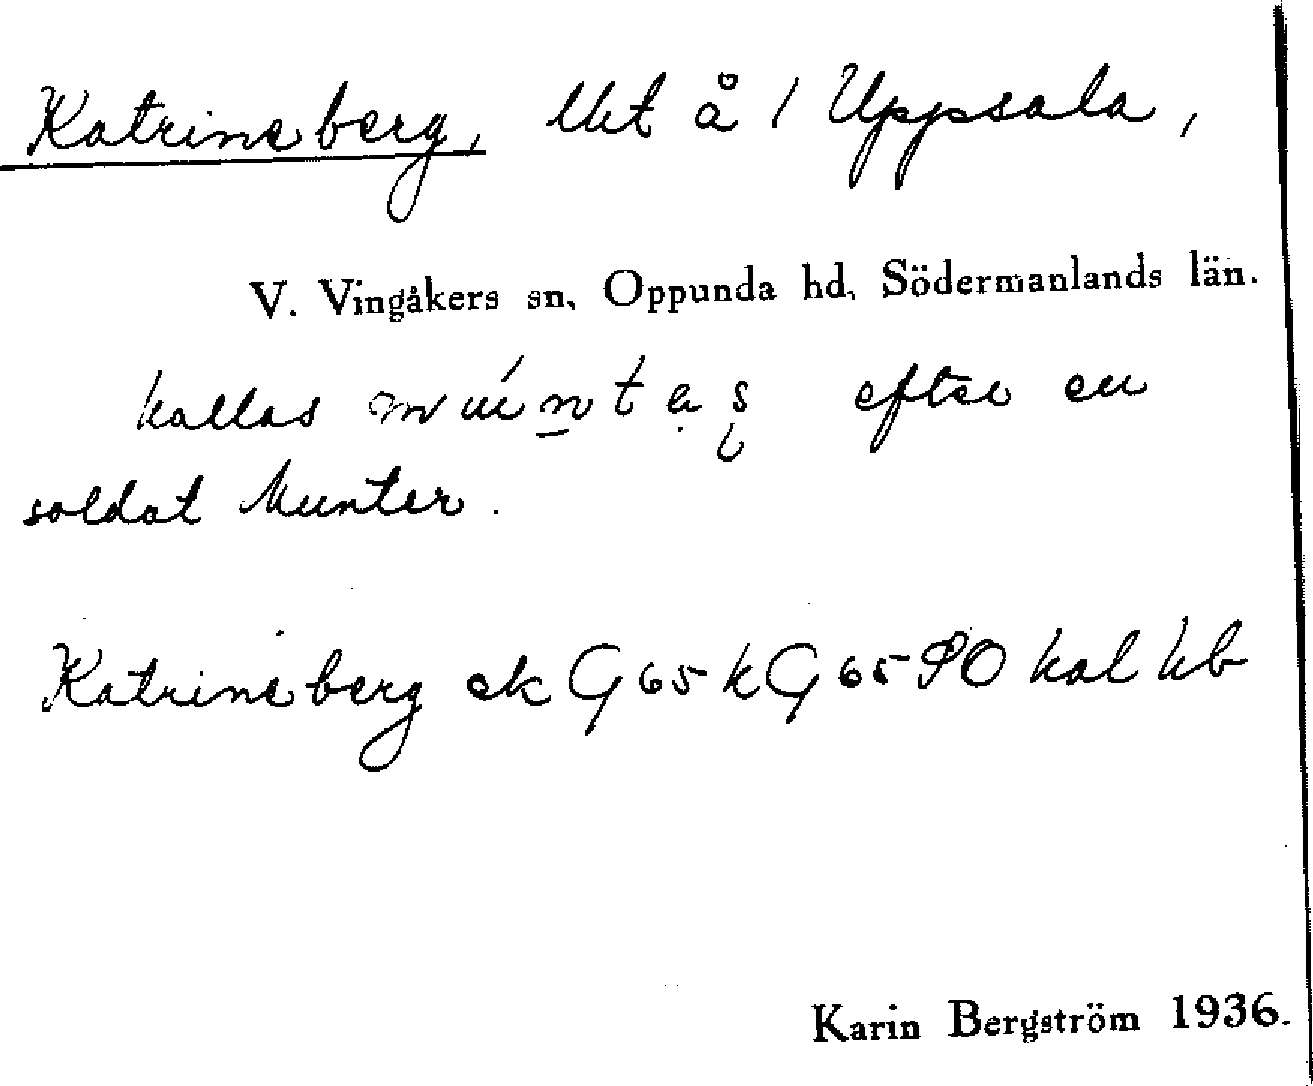 Katrineberg, lht å 1 Uppsala,
V. Vingåkers sn, Oppunda hd, Södermanlands län.
kallas efter en
soldat Munter.
Katrineberg ek G 65 k G 65 PO kal hb
Karin Bergström 1936.